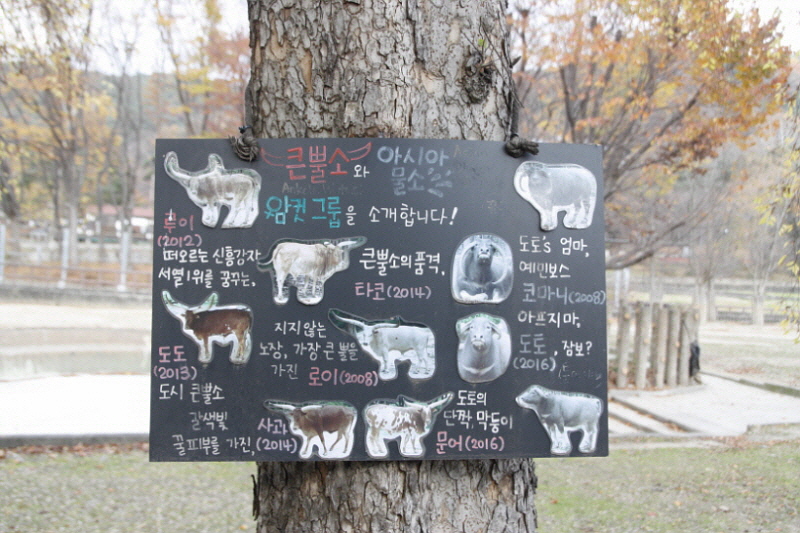 큰뿔소와 아시아
물소
암컷 그룹을 소개합니다!
루이
(2012)
떠오르는 신흥강자
서열1위를 꿈꾸는,
큰뿔소의 품격,
타코(2014)
도토's 엄마,
예민보스
코마니(2008)
지지않는
노장, 가장 큰 뿔을
가진 로이(2008)
아프지마,
도토, 잠보?
(2016)
도도
(2013)
도시 큰뿔소
갈색빛
꿀피부를 가진,
사과
(2014)
도토의
단짝, 막둥이
문어(2016)